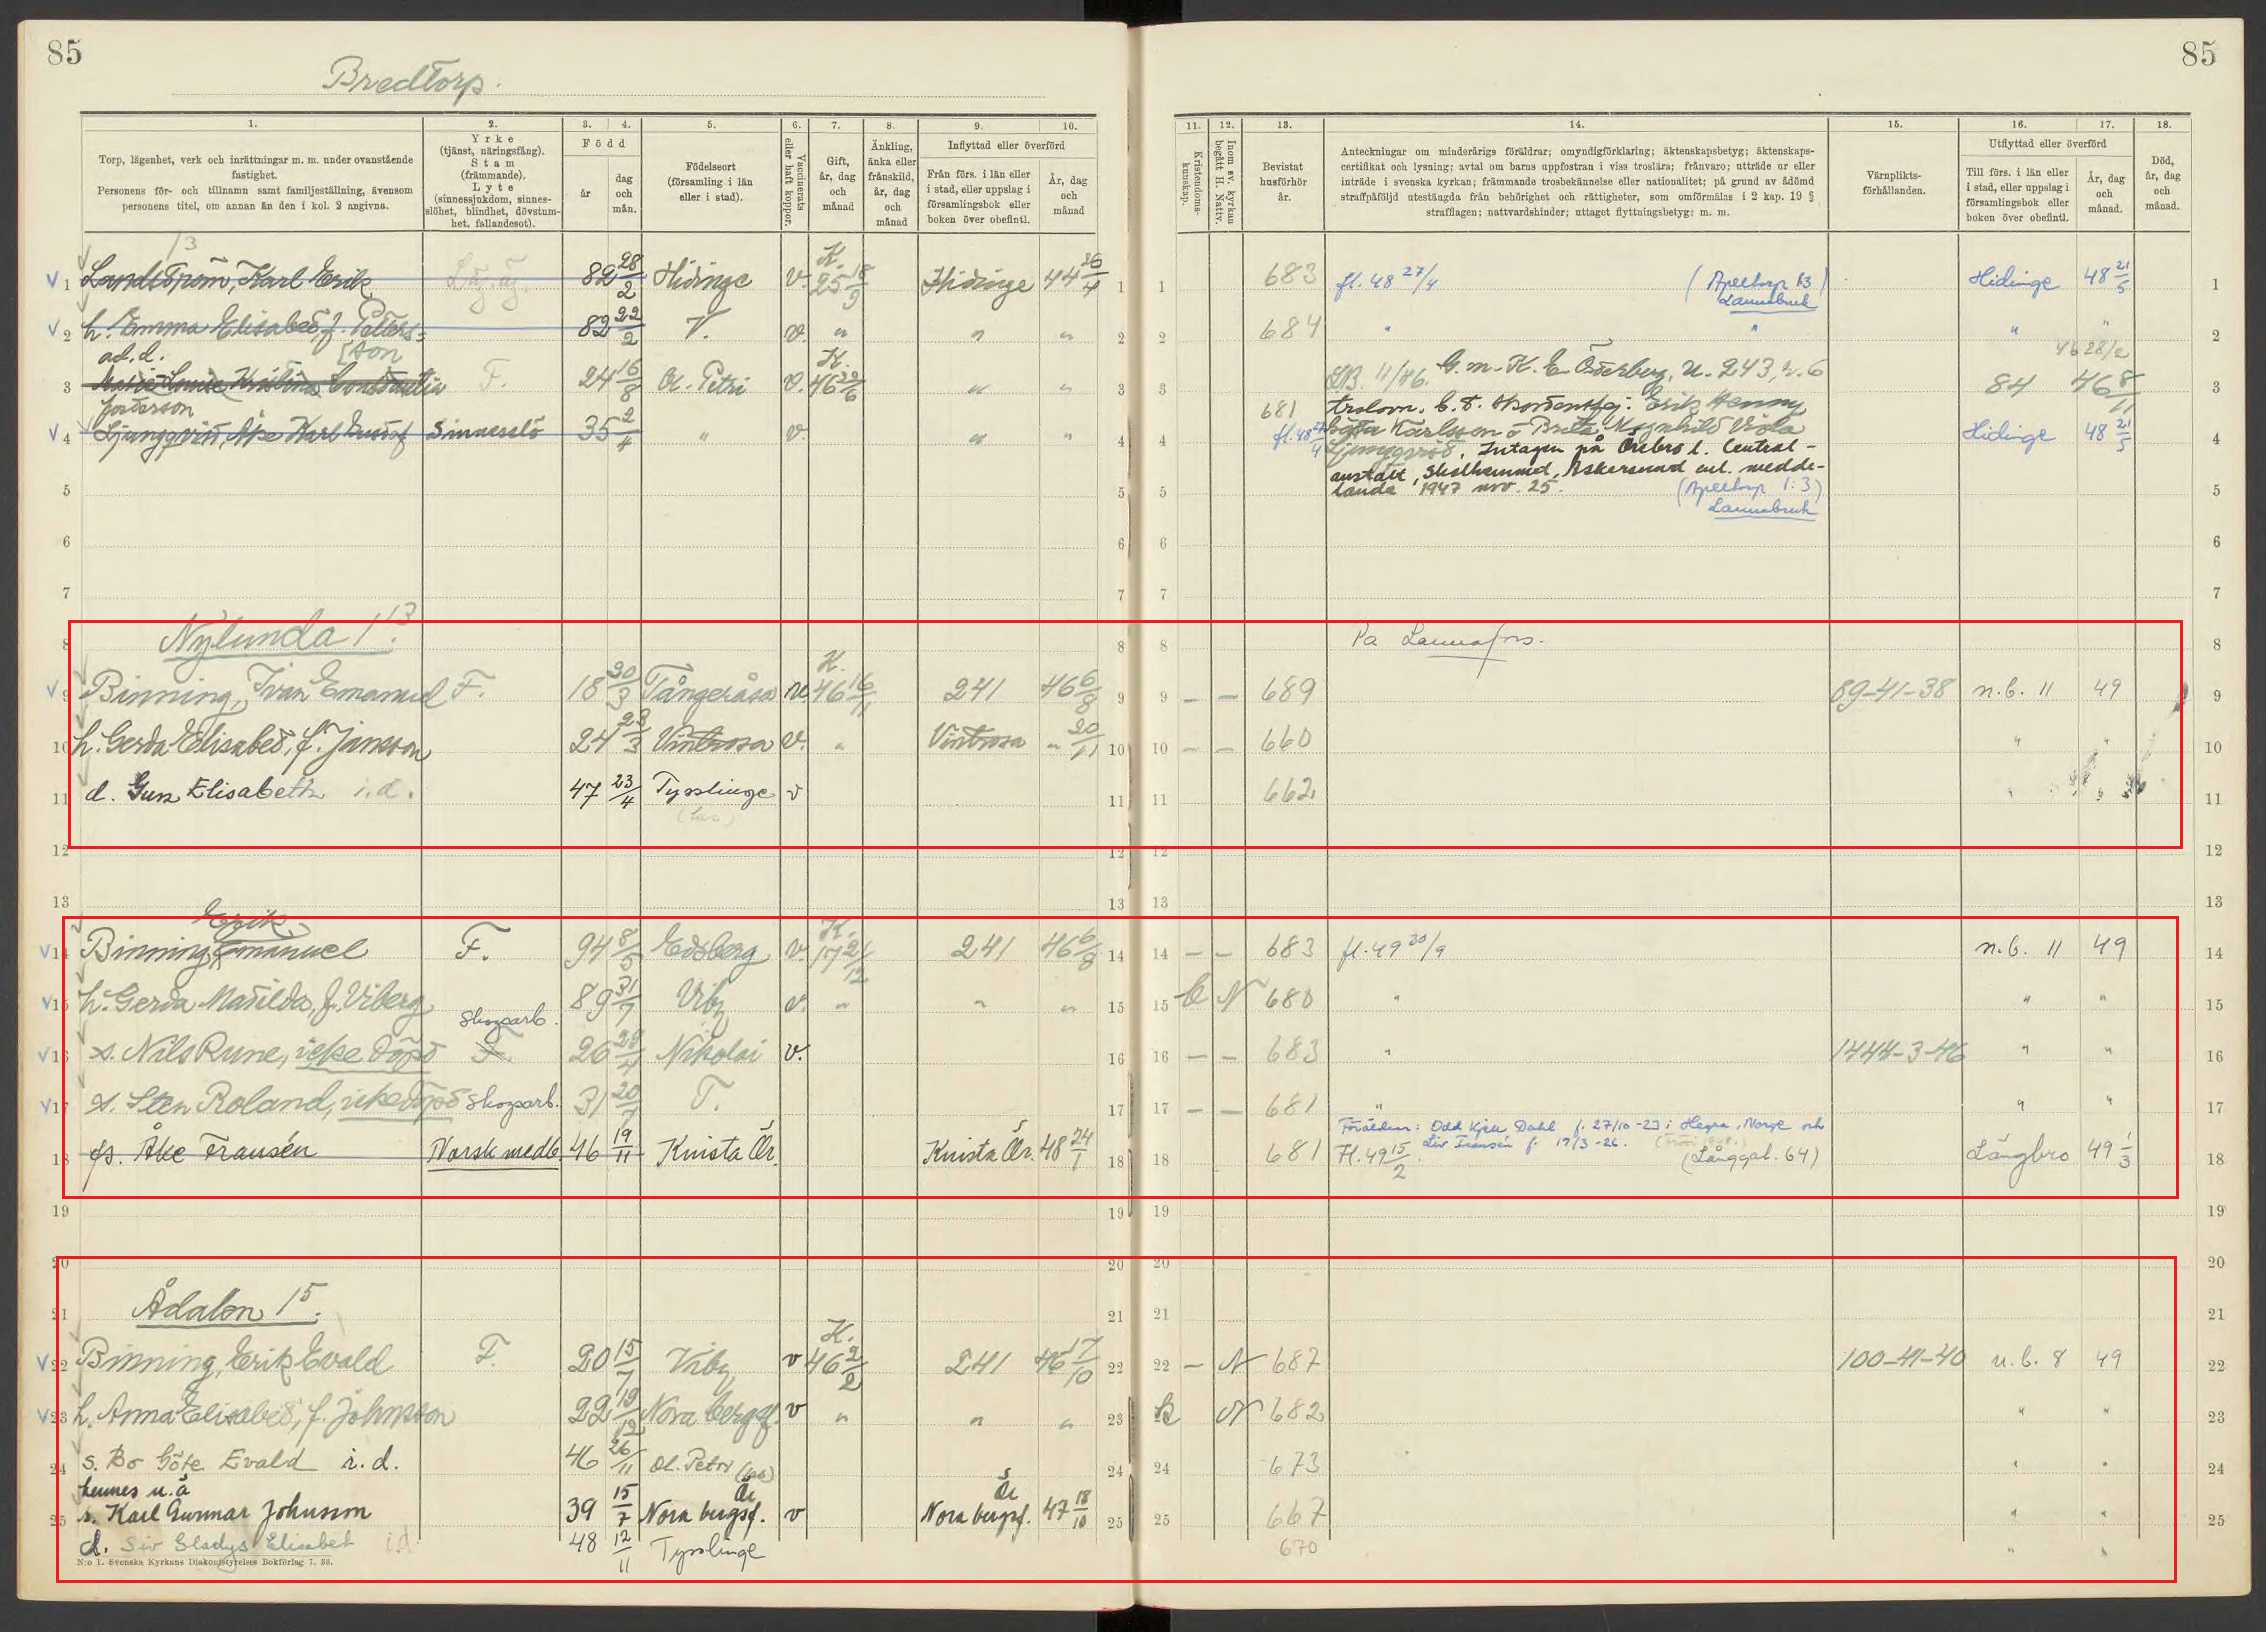 85
85
Bredtorp.
1. 2. 3. 4. 5. 6. 7. 8. 9. 10.
11. 12. 13. 14. 15. 16. 17. 18.
Torp, lägenhet, verk och inrättningar m. m. under ovanstående
fastighet.
Personens för- och tillnamn samt familjeställning, ävensom
personens titel, om annan än den i kol. 2 angivna.
Yrke
(tjänst, näringsfång).
Stam
(främmande).
Lyte
(sinnessjukdom, sinnes-
slöhet, blindhet, dövstum-
het, fallandesot).
Född
år
dag
och
mån.
Födelseort
(församling i län
eller i stad).
Vaccinerats
eller haft koppor.
Gift,
år, dag
och
månad
Änkling,
änka eller
frånskild,
år, dag
och
månad
Inflyttad eller överförd
Från förs. i län eller
i stad, eller uppslag i
församlingsbok eller
boken över obefintl.
År, dag
och
månad
Kristendoms-
kunskap.
Inom sv. kyrkan
begått H. Nattv.
Bevistat
husförhör
år.
Anteckningar om minderårigs föräldrar; omyndigförklaring; äktenskapsbetyg; äktenskaps-
certifikat och lysning; avtal om barns uppfostran i viss troslära; frånvaro; utträde ur eller
inträde i svenska kyrkan; främmande trosbekännelse eller nationalitet; på grund av ådömd
straffpåföljd utestängda från behörighet och rättigheter, som omförmälas i 2 kap. 19 §
strafflagen; nattvardshinder; uttaget flyttningsbetyg: m. m.
Värnplikts-
förhållanden.
Utflyttad eller överförd
Till förs. i län eller
i stad, eller uppslag i
församlingsbok eller
boken över obefintl.
År, dag
och
månad.
Död,
år, dag
och
månad.
13
v 1 Landström, Karl Erik 82 28/2 Hidinge v. K. 25 18/9 Hidinge 44 26/4 1 1 683 fl. 48 27/4 (Apeltorp 1:3) Lannabruk Hidinge 48 21/5 1
v 2 h. Emma Elisabet, f. Petters- 82 22/2 V. v. " " " 2 2 684 " " " " 2
ad. d. [son
3 Maria Louise Kristina Constantia F. 24 16/8 Ol. Petri v. K. 46 22/6 " " 3 3 LB. 11/46. G. m. K. E. Österberg, U. 243, r. 6 84 46 8/11 3
46 28/2
v 4 Ljungqvist, Åke Karl Gustaf Sinnesslö 35 2/4 " v. " " 4 4 681 fl. 48 27/4 Hidinge 48 21/5 4
Ljungqvist, Intagen på Örebro l. Central-
anstalt, Skolhemmet, Askersund enl. medde-
lande 1947 nov. 25. (Apeltorp 1:3)
Lannabruk
5 5 5 5
6 6 6 6
7 7 7 7
8 Nylunda 1:13 8 8 På Lannafors. 8
v 9 Binning, Ivan Emanuel F. 18 30/3 Tångeråsa n. K. 46 16/11 241 46 6/8 9 9 – – 689 89-41-38 n.b. 11 49 9
10 h. Gerda Elisabet, f. Jansson 24 23/3 Vintrosa v. " Vintrosa " 20/11 10 10 – – 660 " " 10
11 d. Gun Elisabeth i.d. 47 23/4 Tysslinge v 11 11 662 " " 11
(las)
12 12 12 12
13 13 13 13
Erik
v 14 Binning, Emanuel F. 94 8/5 Edsberg v. K. 17 21/12 241 46 6/8 14 14 – – 683 fl. 49 30/9 n.b. 11 49 14
v 15 h. Gerda Matilda, f. Viberg 89 31/7 Viby v. " " " 15 15 b N 680 " " " 15
v 16 s. Nils Rune, icke döpt Skogsarb. F. 26 29/4 Nikolai v. 16 16 – – 683 " 1444-3-46 " " 16
v 17 s. Sten Roland, icke döpt Skogsarb. 31 20/7 T. 17 17 – – 681 " " " 17
Föräldrar: Odd Kjell Dahl f. 27/10-23 i Hegra, Norge och
Liv Fransén f. 19/3-26.
18 fs. Åke Fransén Norsk medb. 46 19/11 Knista Ör. Knista Ör. 48 24/1 18 18 681 Fl. 49 15/2 (Långgat. 64) Långbro 49 1/3 18
19 19 19 19
20 20 20 20
21 Ådalen 1:5. 21 21 21
v 22 Binning, Erik Evald F. 20 15/7 Viby v K. 46 2/2 241 46 17/10 22 22 – N 687 100-41-40 n.b. 8 49 22
v 23 h. Anna Elisabet, f. Johnsson 22 19/12 Nora bergsf. v " " " 23 23 b N 682 " " 23
24 s. Bo Göte Evald i.d. 46 26/11 Ol. Petri (las) 24 24 673 " " 24
hennes u.ä
25 s. Karl Gunnar Johnsson 39 15/7 Nora bergsf. Ör v Nora bergsf. Ör 47 18/10 25 25 667 " " 25
d. Siv Gladys Elisabet i.d. 48 12/11 Tysslinge 670 " "
N:o 1. Svenska Kyrkans Diakonistyrelses Bokförlag 7. 38.